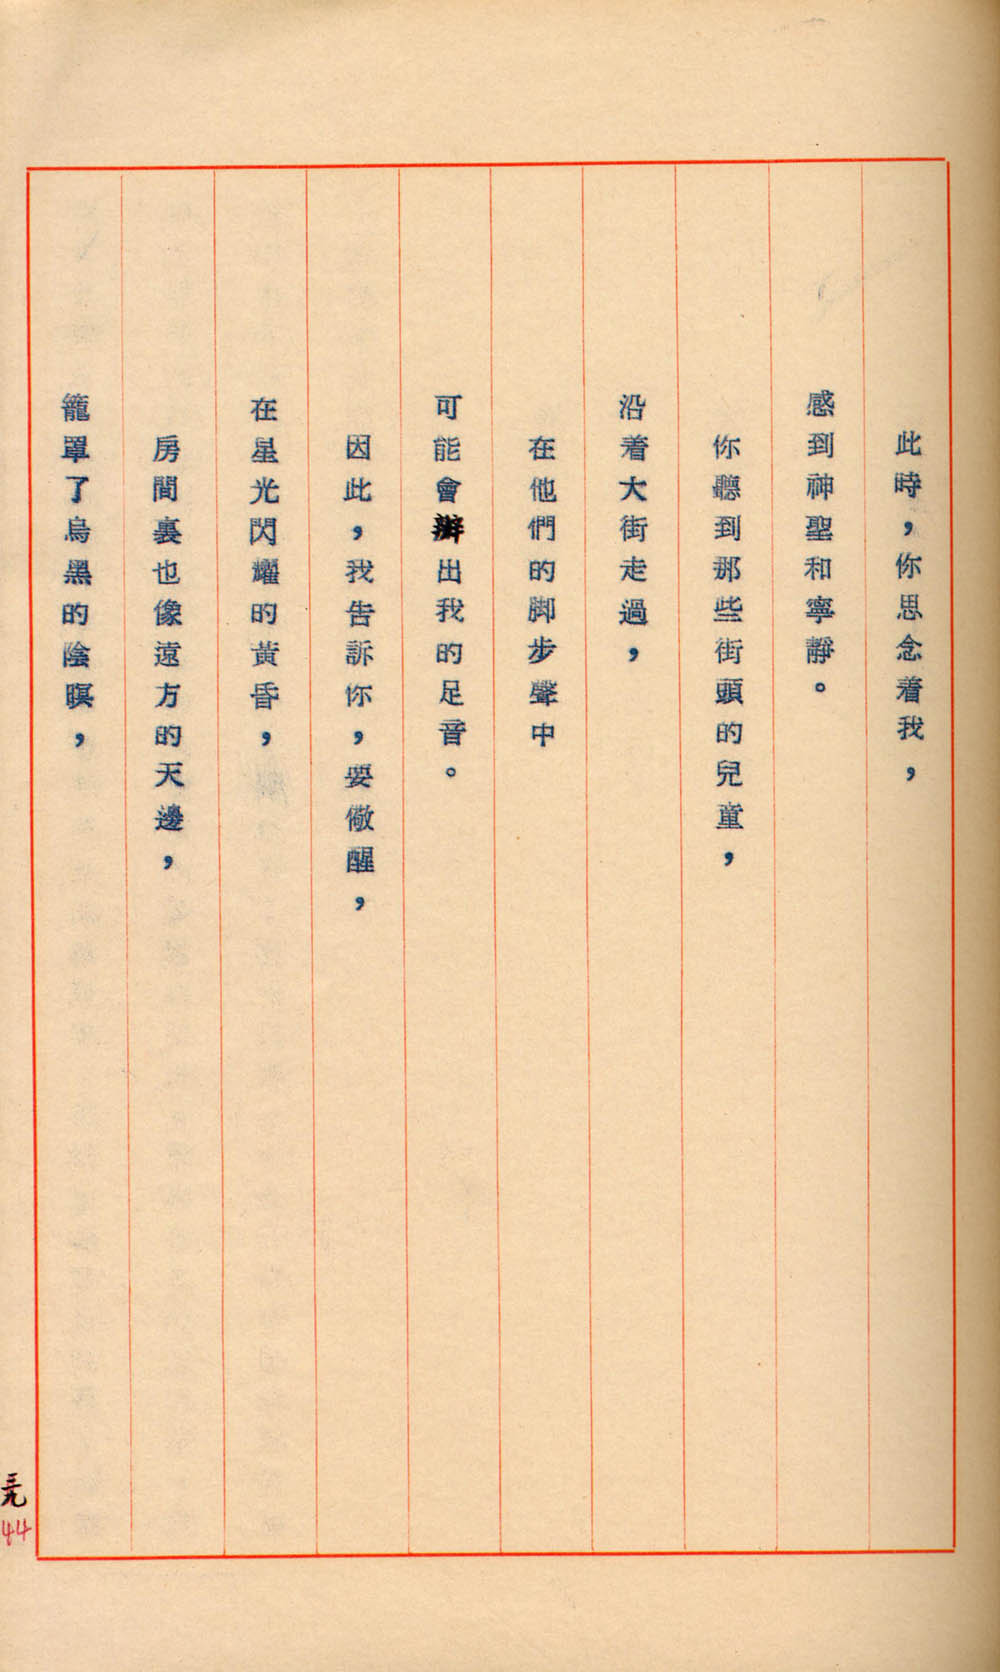 此時，你思念着我，
感到神聖和寧靜。
你聽到那些街頭的兒童，
沿着大街走過，
在他們的脚步聲中
可能會辦出我的足音。
因此，我告訴你，要儆醒，
在星光閃耀的黃昏，
房間裏也像遠方的天邊，
籠罩了烏黑的陰暝，
44